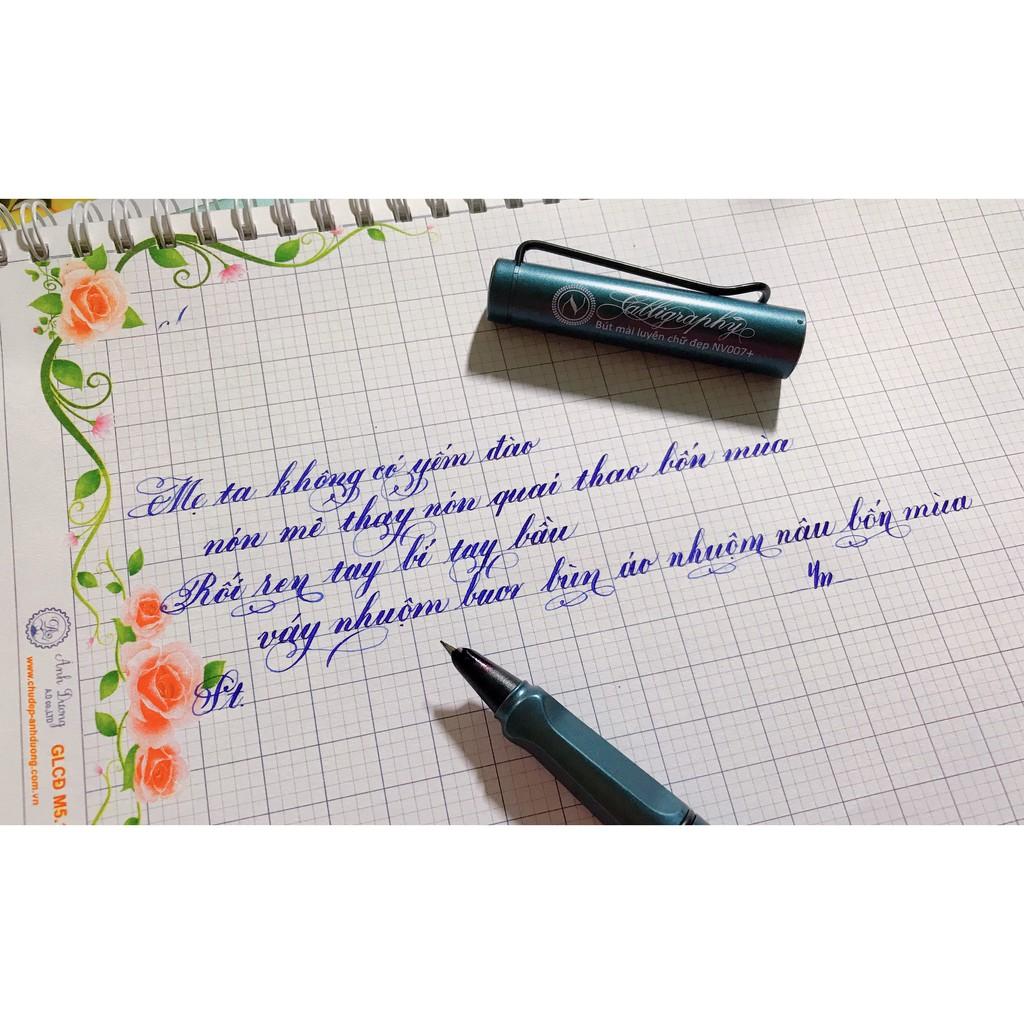 Calligraphy
Bút mài luyện chữ đẹp NV007+
Mẹ ta không có yếm đào
nón mê thay nón quai thao bốn mùa
Rối ren tay bí tay bầu
váy nhuộm bùn áo nhuộm nâu bốn mùa
Ánh Dương
A.D co.,LTD
www.chudep-anhduong.com.vn
GLCĐ M5.